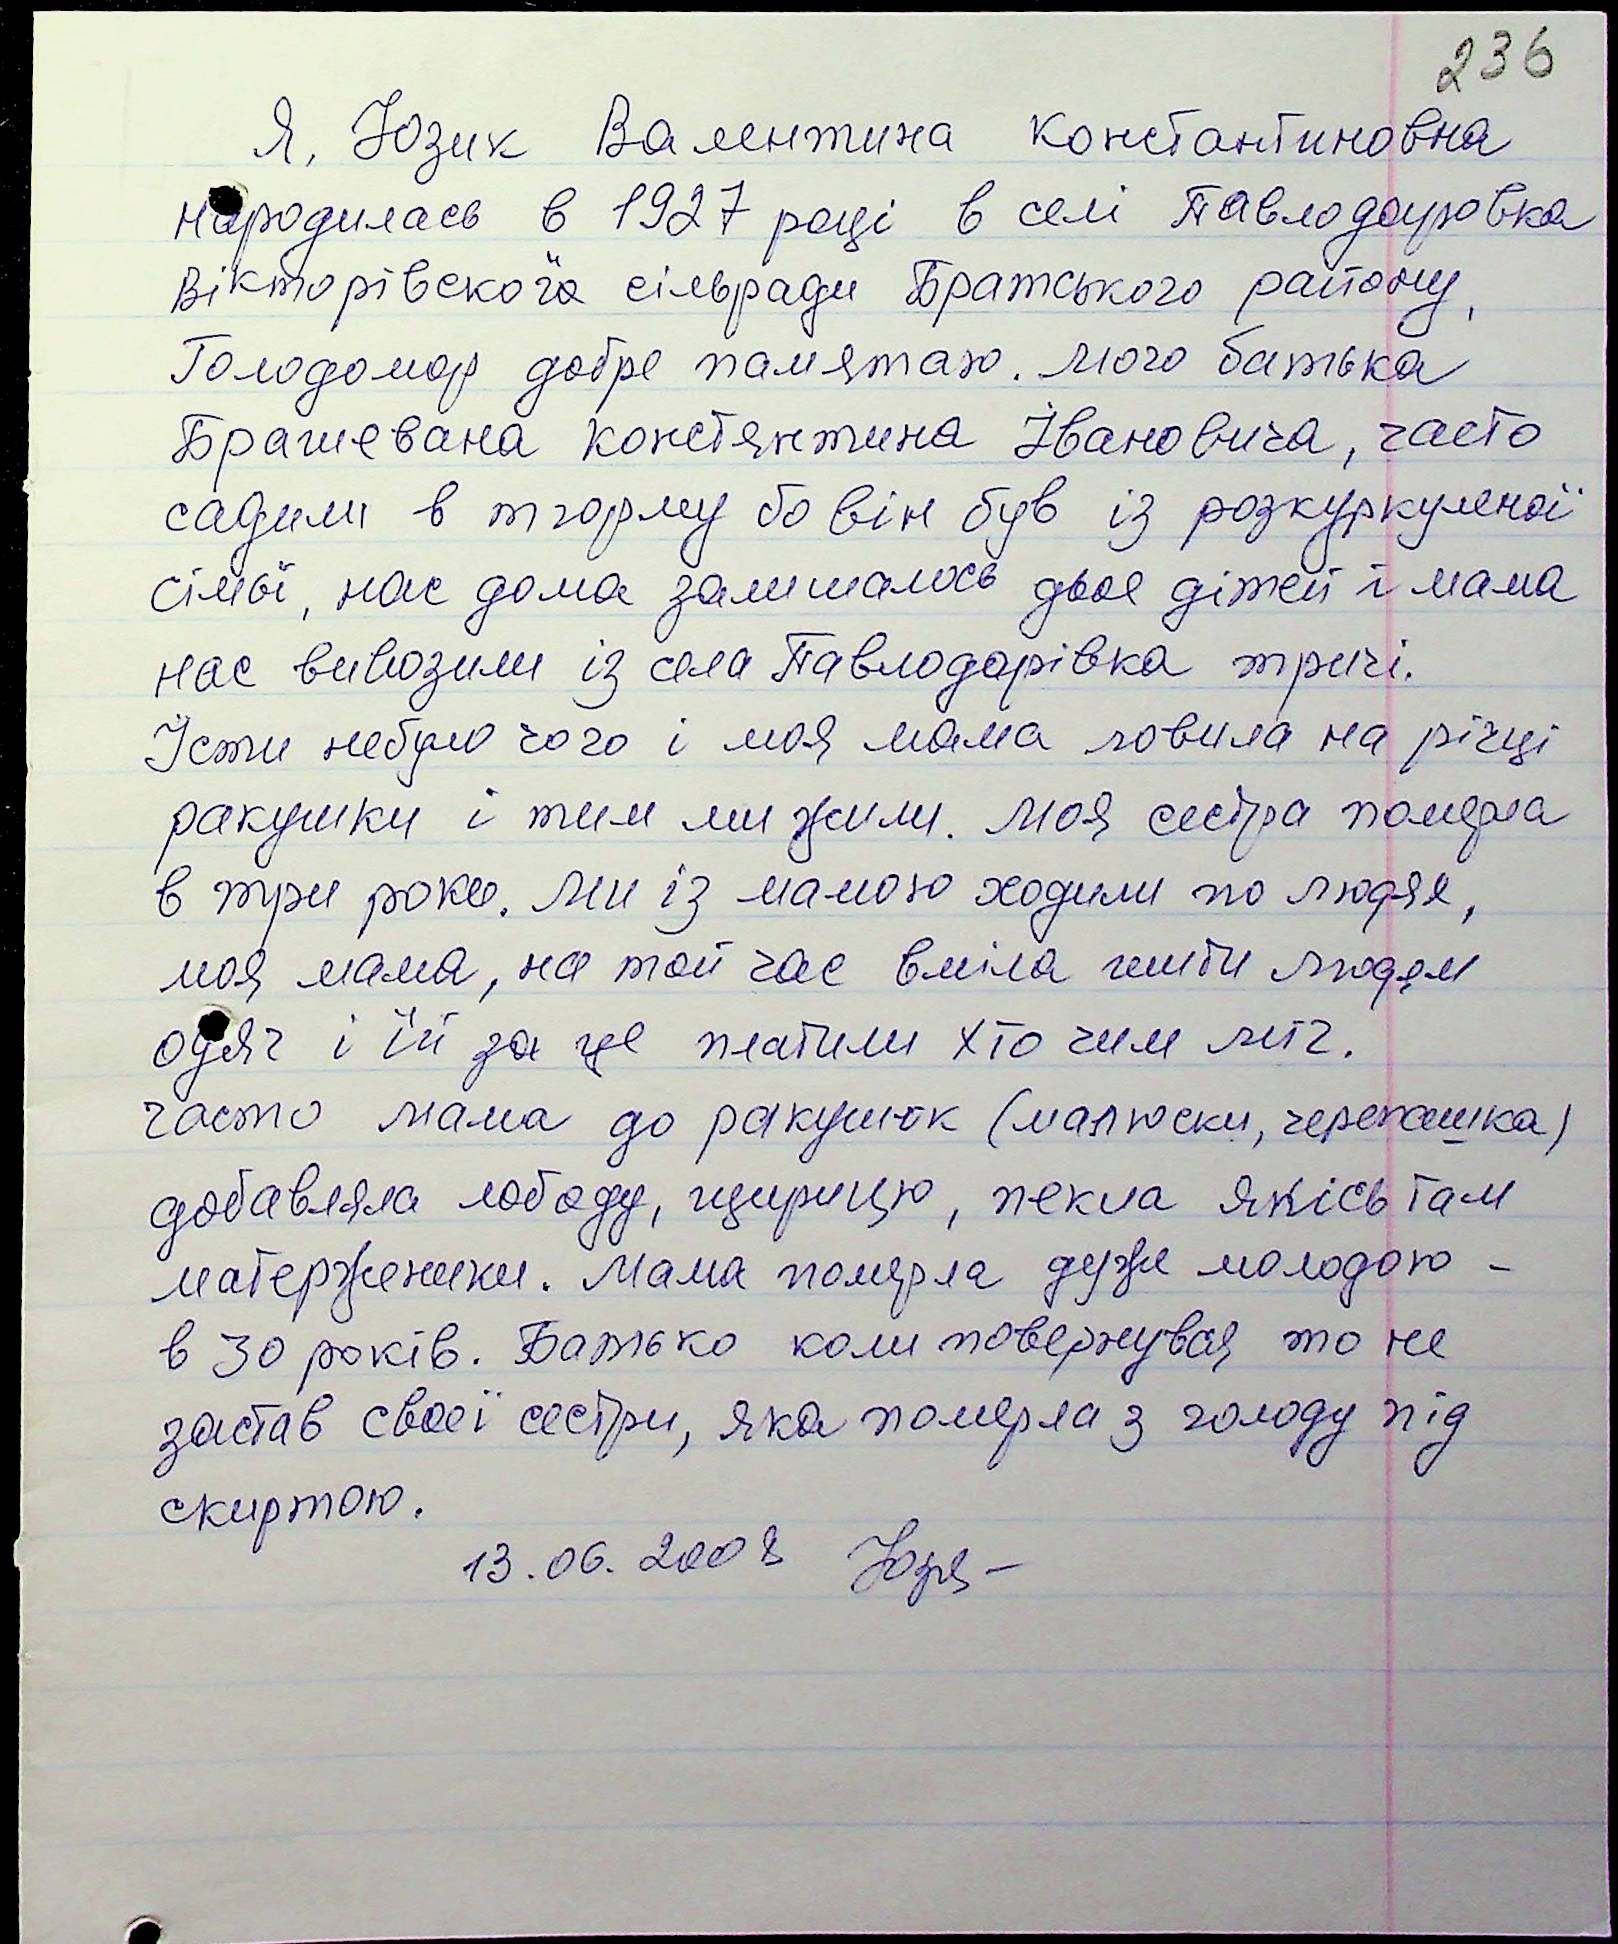 236
Я, Юзик Валентина Константиновна
народилась в 1927 році в селі Павлодаровка
Вікторівської сільради Братського району,
Голодомор добре памятаю. Мого батька
Брашевана Констянтина Івановича, часто
садили в тюрму бо він був із розкуркуленої
сімьї, нас дома залишалось двоє дітей і мама
нас вивозили із села Павлодарівка тричі.
Їсти небуло чого і моя мама ловила на річці
ракушки і тим ми жили. Моя сестра померла
в три роки. Ми із мамою ходили по людях,
моя мама, на той час вміла шити людям
одяг і їй за це платили хто чим міг.
Часто мама до ракушок (малюски, черепашка)
добавляла лободу, щирицю, пекла якісь там
матерженики. Мама померла дуже молодою -
в 30 років. Батько коли повернувся то не
застав своєї сестри, яка померла з голоду під
скиртою.
13.06.2008